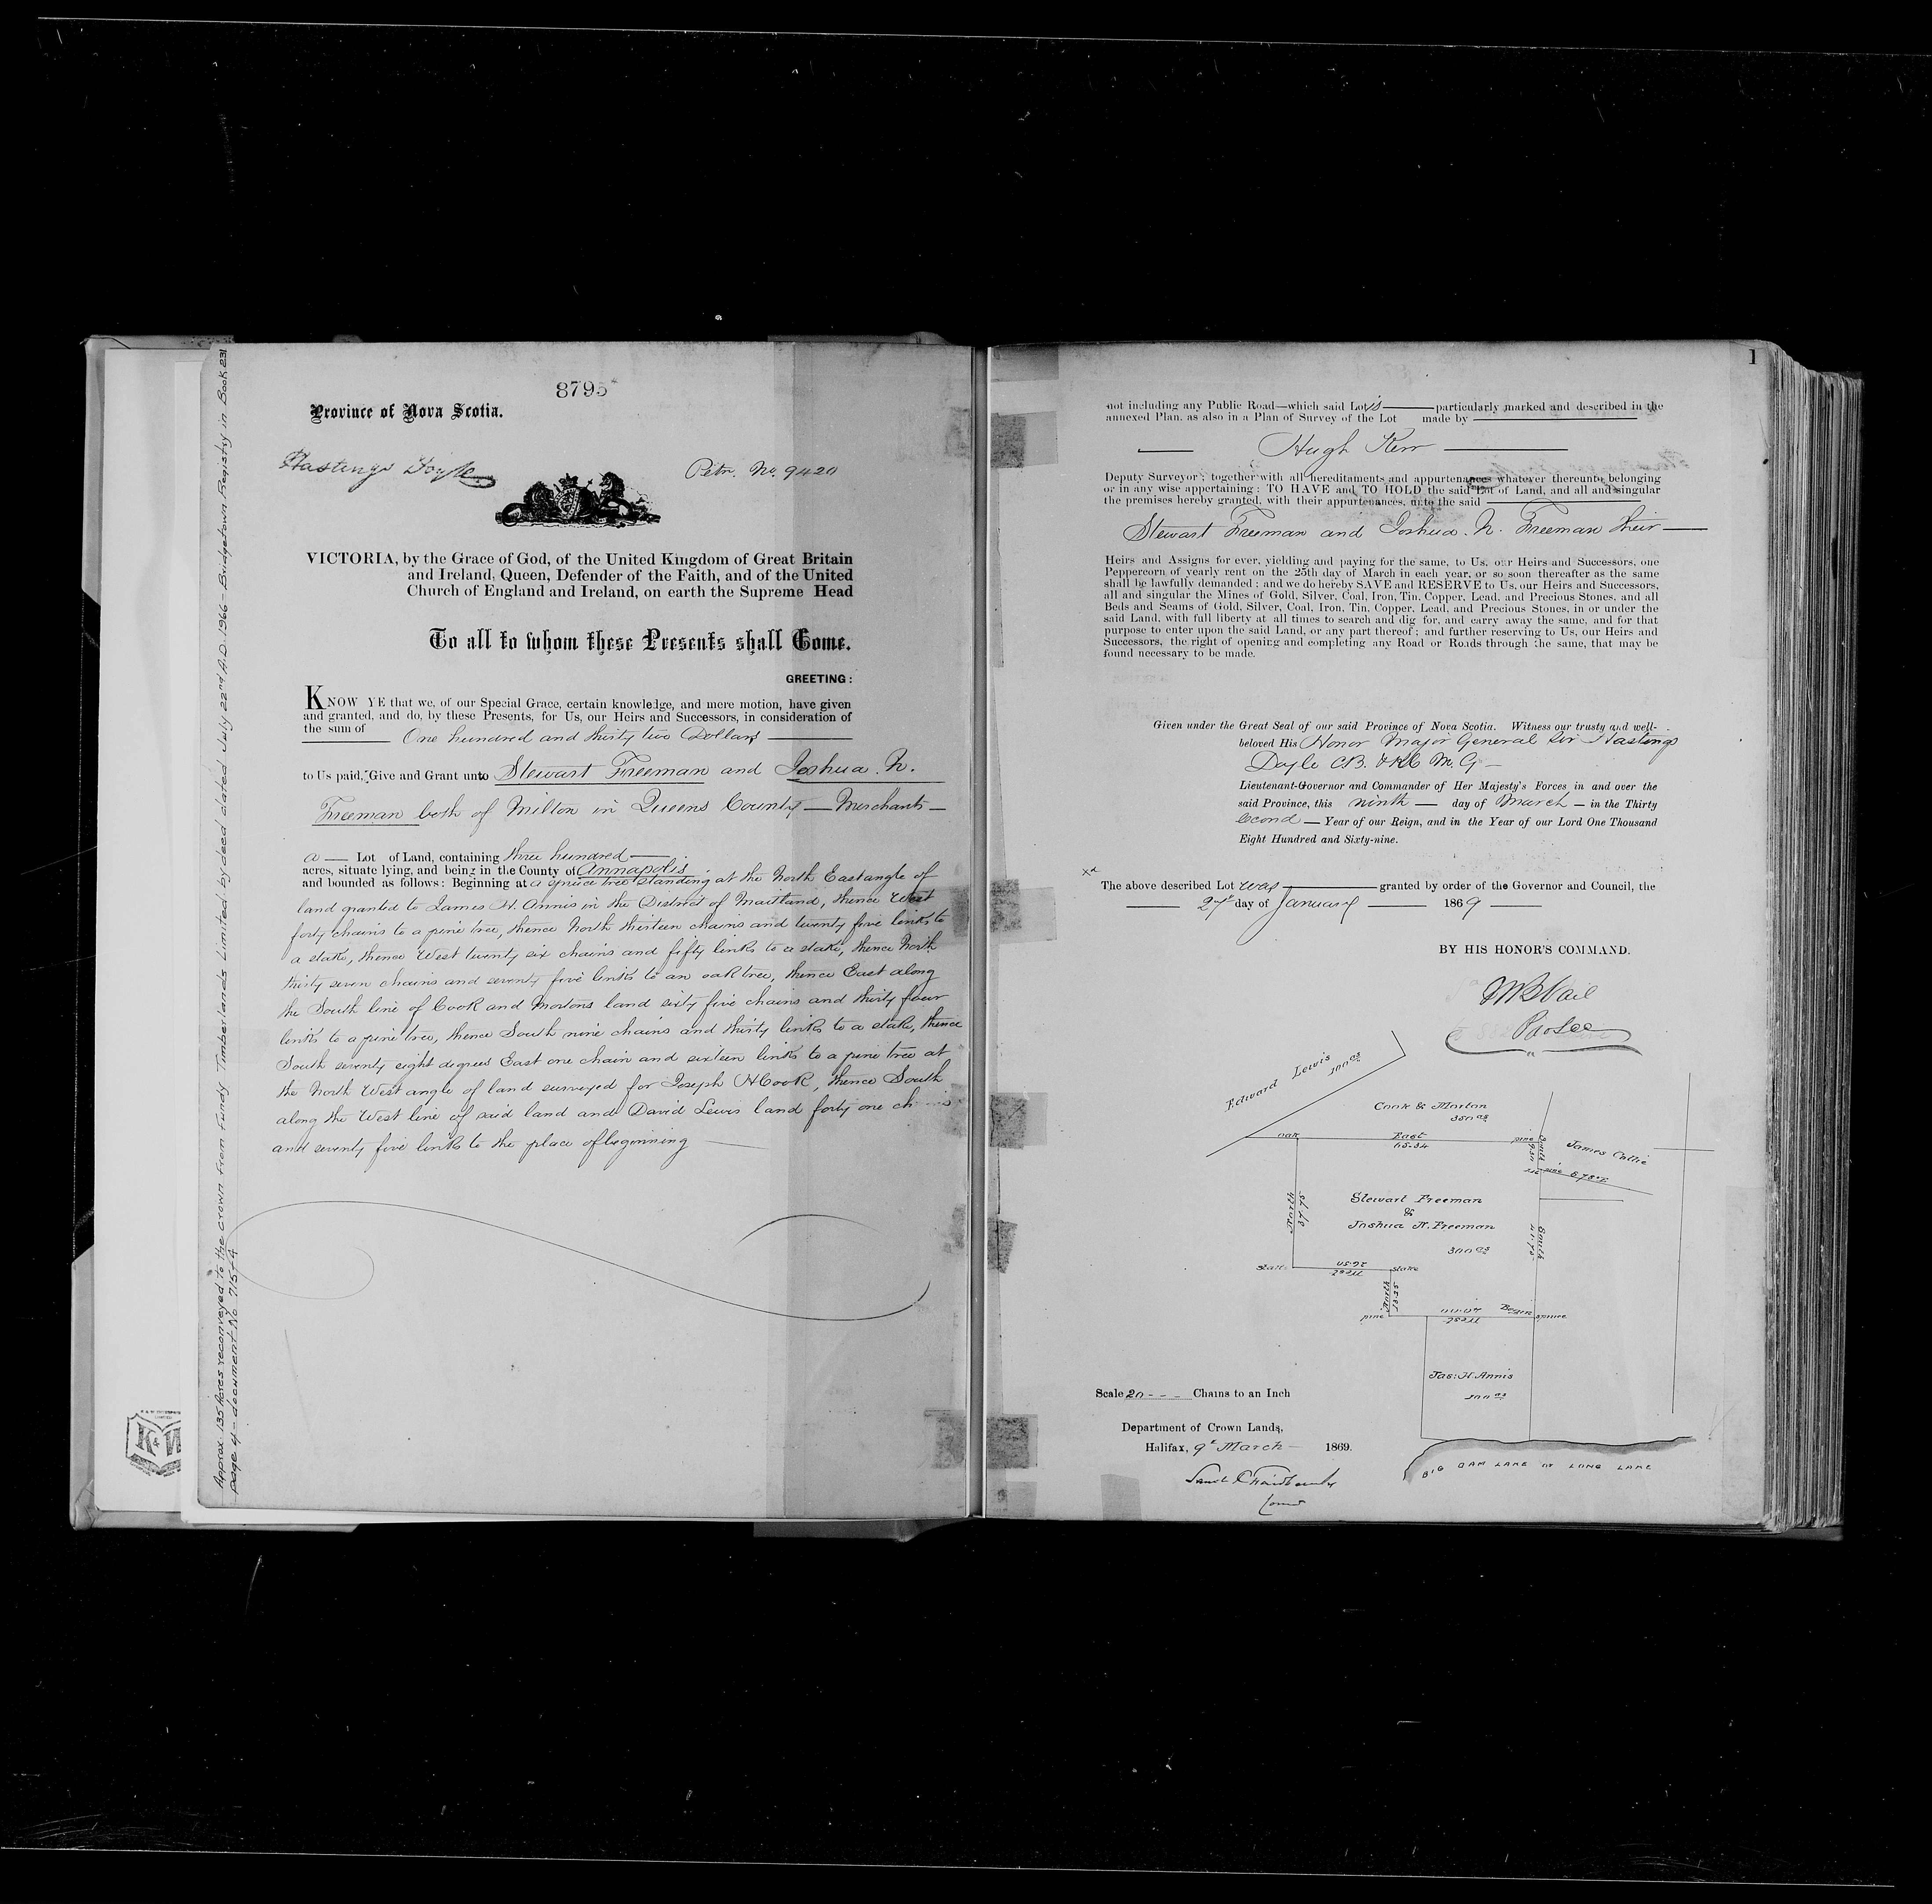 8795
Province of Nova Scotia.
Hastings Doyle
Petn. No. 9420
VICTORIA, by the Grace of God, of the United Kingdom of Great Britain
and Ireland, Queen, Defender of the Faith, and of the United
Church of England and Ireland, on earth the Supreme Head
To all to whom these Presents shall Come.
GREETING:
KNOW YE that we, of our Special Grace, certain knowledge, and mere motion, have given
and granted, and do, by these Presents, for Us, our Heirs and Successors, in consideration of
the sum of One hundred and thirty two Dollars
to Us paid, Give and Grant unto Stewart Freeman and Joshua. N.
Freeman both of Milton in Queens County — Merchants —
a — Lot of Land, containing three hundred —
acres, situate lying, and being in the County of Annapolis
and bounded as follows: Beginning at a spruce tree standing at the North East angle of
land granted to James H. Annis in the District of Maitland, thence West
forty chains to a pine tree, thence North thirteen chains and twenty five links to
a stake, thence West twenty six chains and fifty links to a stake, thence North
thirty seven chains and seventy five links to an oak tree, thence East along
the South line of Cook and Mortons land sixty five chains and thirty four
links to a pine tree, thence South nine chains and thirty links to a stake, thence
South seventy eight degrees East one chain and sixteen links to a pine tree at
the North West angle of land surveyed for Joseph H Cook, thence South
along the West line of said land and David Lewis land forty one chains
and seventy five links to the place of beginning
Approx. 135 Acres reconveyed to the Crown from Fundy Timberlands Limited by deed dated July 22nd A.D. 1966 - Bridgetown Registry in Book 231
page 4 - document No 71544
1
not including any Public Road—which said Lot is — particularly marked and described in the
annexed Plan, as also in a Plan of Survey of the Lot made by
Hugh Kerr
Deputy Surveyor; together with all hereditaments and appurtenances whatever thereunto belonging
or in any wise appertaining: TO HAVE and TO HOLD the said Lot of Land, and all and singular
the premises hereby granted, with their appurtenances, unto the said
Stewart Freeman and Joshua. N. Freeman their —
Heirs and Assigns for ever, yielding and paying for the same, to Us, our Heirs and Successors, one
Peppercorn of yearly rent on the 25th day of March in each year, or so soon thereafter as the same
shall be lawfully demanded; and we do hereby SAVE and RESERVE to Us, our Heirs and Successors,
all and singular the Mines of Gold, Silver, Coal, Iron, Tin, Copper, Lead, and Precious Stones, and all
Beds and Seams of Gold, Silver, Coal, Iron, Tin, Copper, Lead, and Precious Stones, in or under the
said Land, with full liberty at all times to search and dig for, and carry away the same, and for that
purpose to enter upon the said Land, or any part thereof; and further reserving to Us, our Heirs and
Successors, the right of opening and completing any Road or Roads through the same, that may be
found necessary to be made.
Given under the Great Seal of our said Province of Nova Scotia. Witness our trusty and well-
beloved His Honor Major General Sir Hastings
Doyle CB. & KC M. G —
Lieutenant-Governor and Commander of Her Majesty's Forces in and over the
said Province, this ninth — day of March — in the Thirty
Second — Year of our Reign, and in the Year of our Lord One Thousand
Eight Hundred and Sixty-nine.
The above described Lot was — granted by order of the Governor and Council, the
27th day of January — 1869 —
BY HIS HONOR'S COMMAND.
W B Vail
Pro Sec
Edward Lewis
100 as
Cook & Morton
350 as
oak
East
65.34
pine
South
9.30
pine
S 78° E
James Callie
North
37.75
Stewart Freeman
&
Joshua N. Freeman
300 as
South
41.75
stake
26.50
West
stake
North
13.25
pine
40.00
West
Began
spruce
Jas: H. Annis
100 as
BIG DAM LAKE or LONG LAKE
Scale 20 - - - Chains to an Inch
Department of Crown Lands,
Halifax, 9th March — 1869.